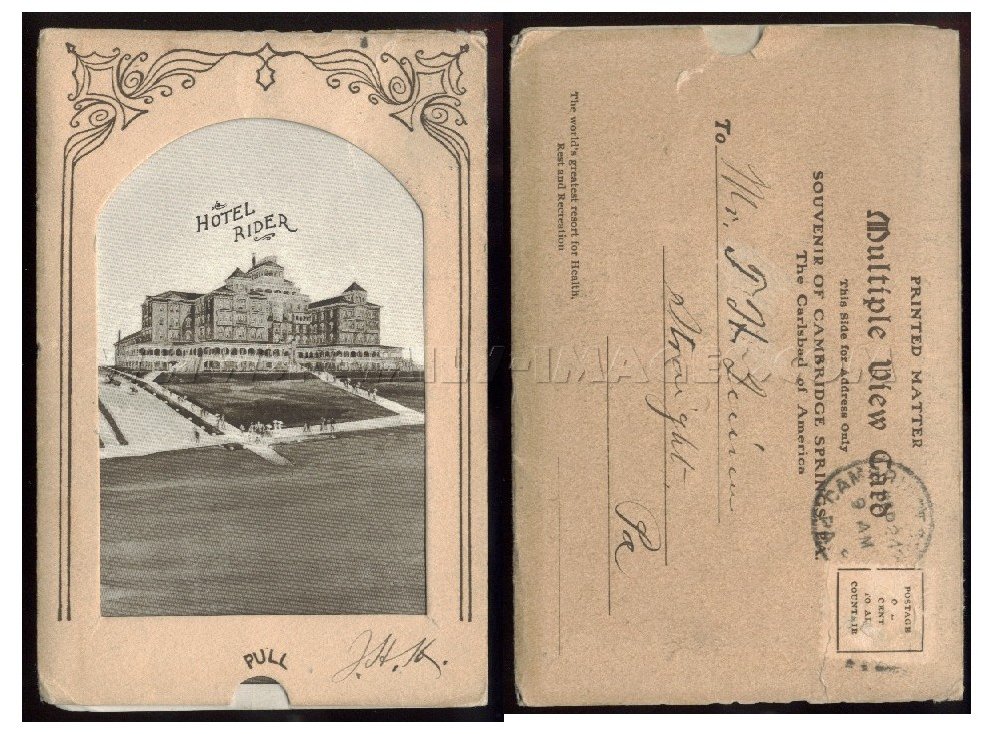 HOTEL
RIDER
PULL
J.H.K.
PRINTED MATTER
Multiple View Card
This Side for Address Only
SOUVENIR OF CAMBRIDGE SPRINGS, PA.
The Carlsbad of America
To Mr. F. H.
Straight
Pa
The world's greatest resort for Health,
Rest and Recreation
9 AM
POSTAGE
CENT
COUNTRIE